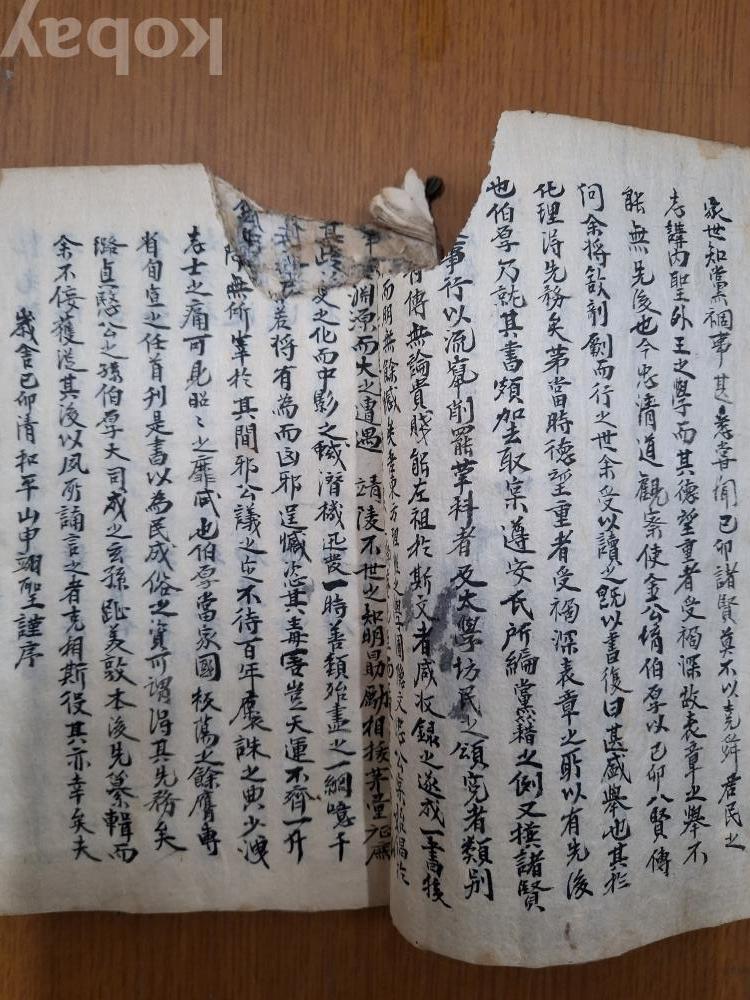 kobay
家世知黨禍事甚悉嘗聞己卯諸賢莫不以堯舜君民之
志講內聖外王之學而其德望重者受禍深故表章之舉不
能無先後也今忠淸道觀察使金公堉伯厚以己卯八賢傳
問余將欲剞劂而行之世余受以讀之旣以書復曰甚盛擧也其於
化理得先務矣第當時德望重者受禍深表章之所以有先後
也伯厚乃就其書頗加去取棄遵安氏所編黨籍之例又摭諸賢
事行以流竄削罷革科者及太學坊民之頌寃者類別
有傳無論貴賤能左袒於斯文者咸收錄之遂成一書後
而明無餘憾矣東方理性之學圃隱文忠公
淵源而大之遭遇 靖陵不世之知明勗勵相接
其 之化而中影之蜮潛機迅發一時善類殆盡之一網噫千
若將有爲而凶邪逞憾恣其毒害豈天運不齊一升
降無所 於其間邪公議之定不待百年 誅之典少洩
志士之痛可見昭〻之靡忒也伯厚當家國板蕩之餘膺專
省旬宣之任首刊是書以爲民成俗之資可謂得其先務矣
潞貞愍公之孫伯厚大司成之玄孫趾美敦本後先纂輯而
余不佞獲從其後以夙所誦言之者克相斯役其亦幸矣夫
歲舍己卯淸和平山申翊聖謹序